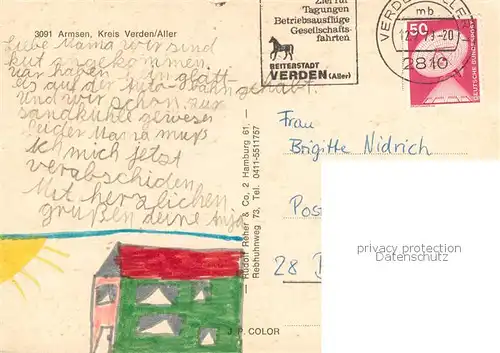 3091 Armsen, Kreis Verden/Aller
Liebe Mama wir sind
gut angekommen.
war haben ein glatt
es auf der Auto bahn gehabt.
Und wir schon zur
sandkuhle gewesen
leider Mama muß
ich mich jetzt
verabschiden.
Mit herzlichen
grüßen deine Anja
Ziel für
Tagungen
Betriebsausflüge
Gesellschafts-
fahrten
REITERSTADT
VERDEN (Aller)
VERDEN
mb
-20
2810
50
DEUTSCHE BUNDESPOST
Frau
Brigitte Nidrich
Pos
28
Rudolf Reher & Co, 2 Hamburg 61,
Rebhuhnweg 73, Tel. 0411-5511757
J.P. COLOR
privacy protection
Datenschutz